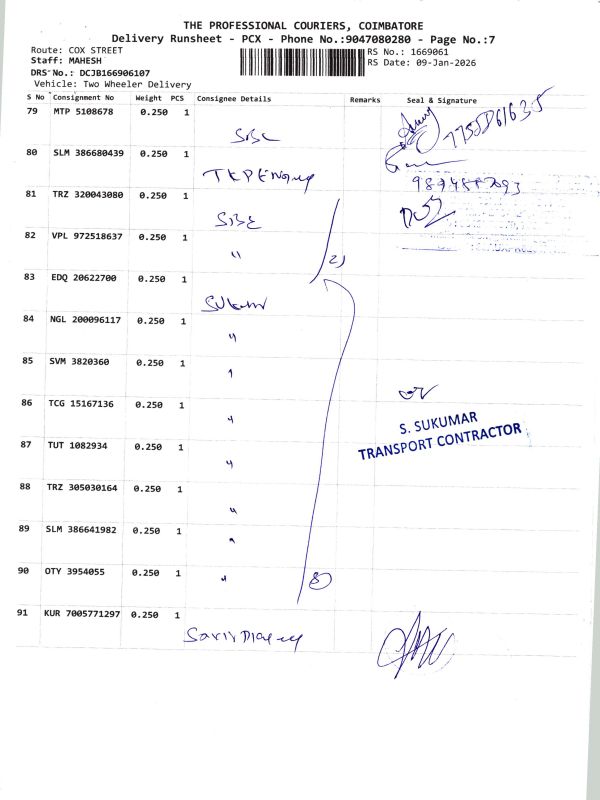 THE PROFESSIONAL COURIERS, COIMBATORE
Delivery Runsheet - PCX - Phone No.:9047080280 - Page No.:7
Route: COX STREET
RS No.: 1669061
Staff: MAHESH
RS Date: 09-Jan-2026
DRS No.: DCJB166906107
Vehicle: Two Wheeler Delivery
S No Consignment No Weight PCS Consignee Details Remarks Seal & Signature
79 MTP 5108678 0.250 1
80 SLM 386680439 0.250 1
81 TRZ 320043080 0.250 1
82 VPL 972518637 0.250 1 "
2)
83 EDQ 20622700 0.250 1 Sukumar
84 NGL 200096117 0.250 1 "
85 SVM 3820360 0.250 1
86 TCG 15167136 0.250 1 "
87 TUT 1082934 0.250 1 "
88 TRZ 305030164 0.250 1 "
89 SLM 386641982 0.250 1 "
90 OTY 3954055 0.250 1 "
8)
S. SUKUMAR
TRANSPORT CONTRACTOR
91 KUR 7005771297 0.250 1